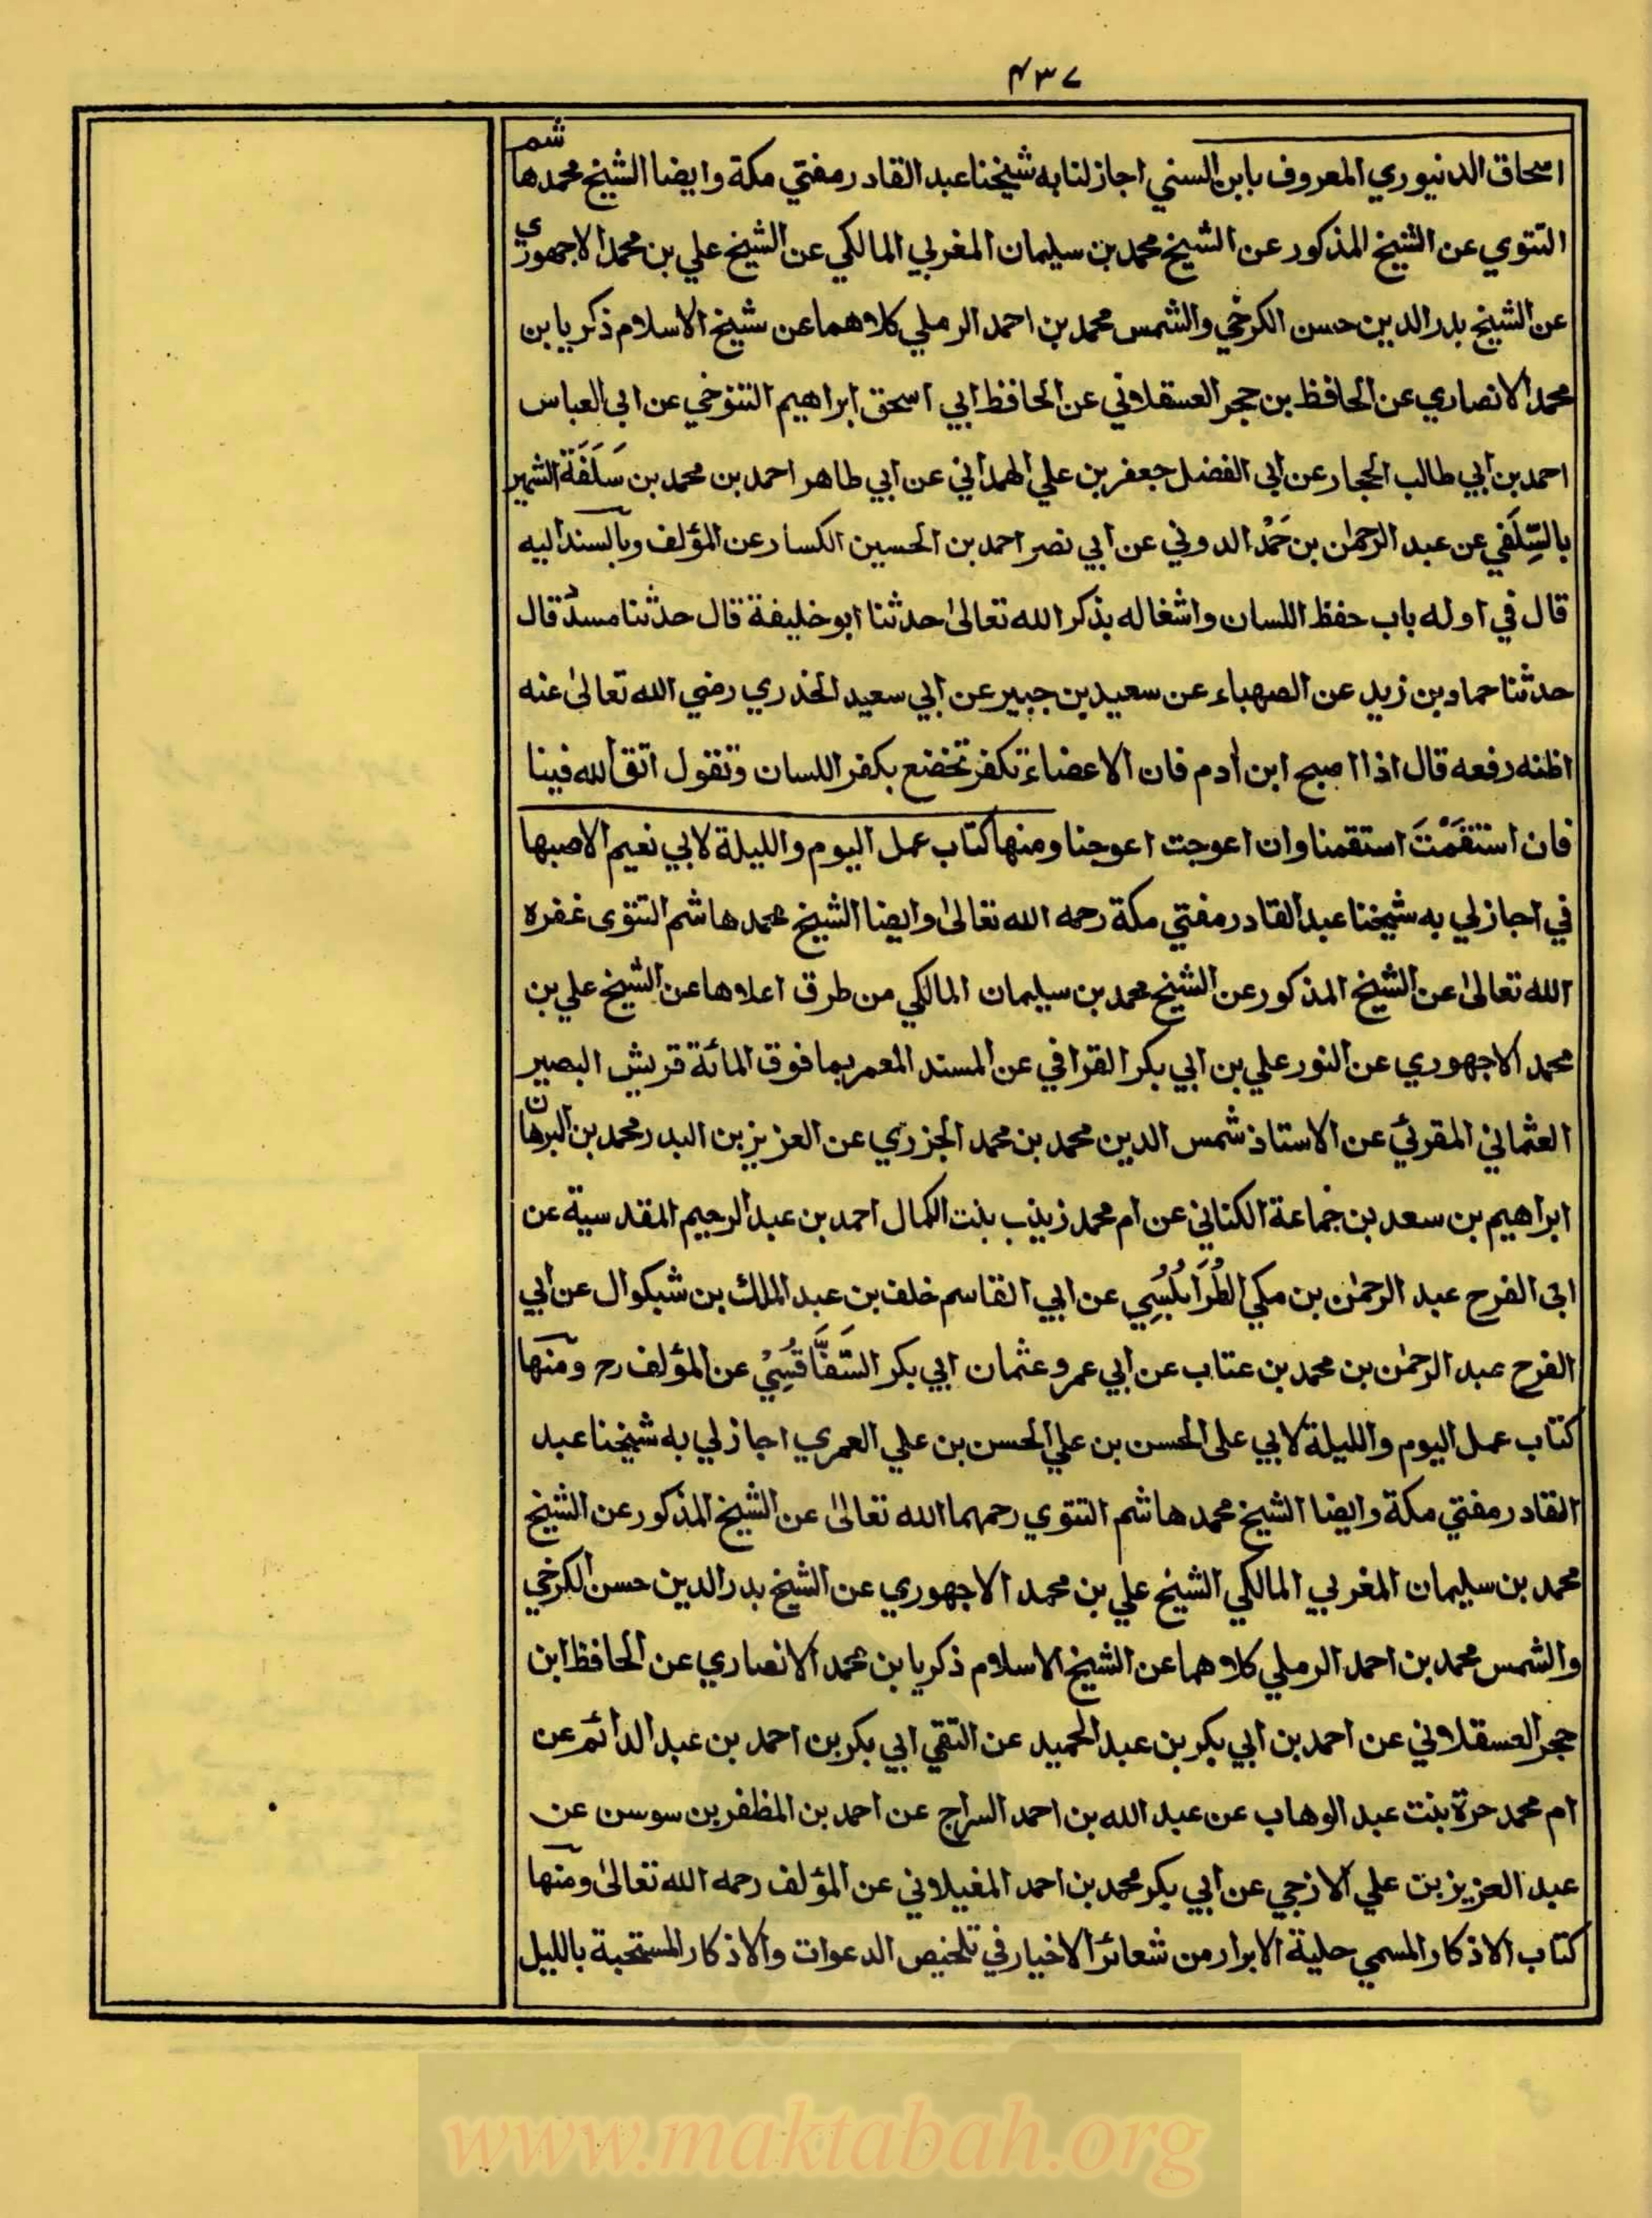 ۴۳۷
اسحاق الدنيوري المعروف بابن السني اجاز لنا به شيخنا عبد القادر مفتي مكة وايضا الشيخ محمد هاشم
التتوي عن الشيخ المذكور عن الشيخ محمد بن سليمان المغربي المالكي عن الشيخ علي بن محمد الاجهوري
عن الشيخ بدر الدين حسن الكرخي والشمس محمد بن احمد الرملي كلاهما عن شيخ الاسلام ذكريا بن
محمد الانصاري عن الحافظ بن حجر العسقلاني عن الحافظ ابي اسحق ابراهيم التنوخي عن ابي العباس
احمد بن ابي طالب الحجار عن ابي الفضل جعفر بن علي الهمداني عن ابي طاهر احمد بن محمد بن سَلَفَة الشهير
بالسِّلَفي عن عبد الرحمٰن بن حَمْد الدوني عن ابي نصر احمد بن الحسين الكسار عن المؤلف وبالسند اليه
قال في اوله باب حفظ اللسان واشغاله بذكر الله تعالىٰ حدثنا ابو خليفة قال حدثنا مسدد قال
حدثنا حماد بن زيد عن الصهباء عن سعيد بن جبير عن ابي سعيد الخدري رضي الله تعالىٰ عنه
اظنه رفعه قال اذا اصبح ابن اٰدم فان الاعضاء تكفر تخضع بكفر اللسان وتقول اتق الله فينا
فان استقَمْتَ استقمنا وان اعوجت اعوجنا ومنها كتاب عمل اليوم والليلة لابي نعيم الاصبها
في اجاز لي به شيخنا عبد القادر مفتي مكة رحمه الله تعالىٰ وايضا الشيخ محمد هاشم التتوى غفره
الله تعالىٰ عن الشيخ المذكور عن الشيخ محمد بن سليمان المالكي من طرق اعلاها عن الشيخ علي بن
محمد الاجهوري عن النور علي بن ابي بكر القرافي عن المسند المعمر بما فوق المائة قريش البصير
العثماني المقرئي عن الاستاذ شمس الدين محمد بن محمد الجزري عن العزيز بن البدر محمد بن البرهان
ابراهيم بن سعد بن خماعة الكناني عن ام محمد زينب بنت الكمال احمد بن عبد الرحيم المقدسية عن
ابى الفرح عبد الرحمٰن بن مكي الطُرَابُلُسِي عن ابي القاسم خلف بن عبد الملك بن شبكوال عن ابي
الفرح عبد الرحمٰن بن محمد بن عتاب عن ابي عمرو عثمان ابي بكر السَّفَاقَسِيْ عن المؤلف رح ومنها
كتاب عمل اليوم والليلة لابي على الحسن بن علي الحسن بن علي العمري اجاز لي به شيخنا عبد
القادر مفتي مكة وايضا الشيخ محمد هاشم التتوي رحمهما الله تعالىٰ عن الشيخ المذكور عن الشيخ
محمد بن سليمان المغربي المالكي الشيخ علي بن محمد الاجهوري عن الشيخ بدر الدين حسن الكرخي
والشمس محمد بن احمد الرملي كلاهما عن الشيخ الاسلام ذكريا بن محمد الانصاري عن الحافظ ابن
حجر العسقلاني عن احمد بن ابي بكر بن عبد الحميد عن التقي ابي بكر بن احمد بن عبد الدائم عن
ام محمد حرة بنت عبد الوهاب عن عبد الله بن احمد السراج عن احمد بن المظفر بن سوسن عن
عبد العزيز بن علي الازجي عن ابي بكر محمد بن احمد المغيلاني عن المؤلف رحمه الله تعالىٰ ومنها
كتاب الاذكار المسمي حلية الابرار من شعائر الاخيار في تلخيص الدعوات والاذكار المستحبة بالليل
www.maktabah.org